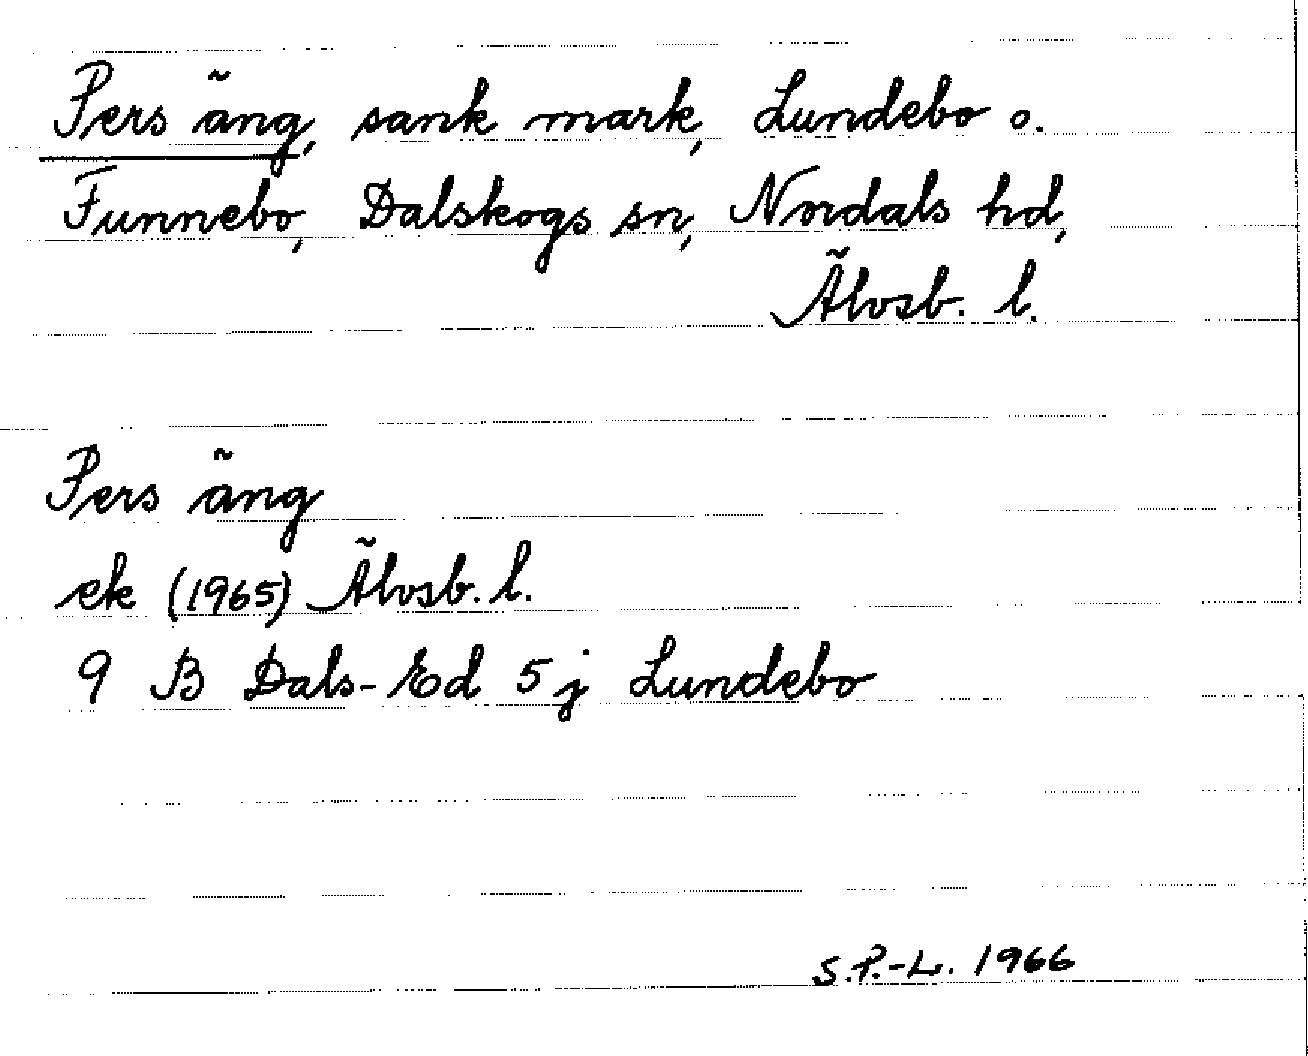 Pers äng, sank mark, Lundebo o.
Funnebo, Dalskogs sn, Nordals hd,
Älvsb. l.
Pers äng
ek (1965) Älvsb. l.
9 B Dals-Ed 5 j Lundebo
S.P.-L. 1966